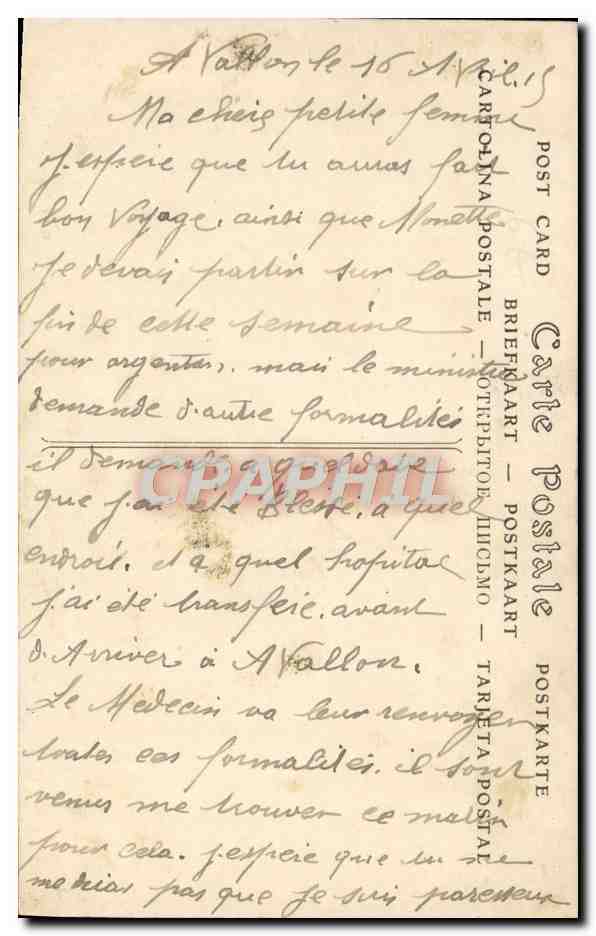 AVallon le 16 AVril. 15
Ma chère petite femme
J.espere que tu auras fait
bon Voyage, ainsi que Monette
Je devais partir sur la
fin de cette semaine
pour argentan, mais le ministre
demande d.autre formalités
il demande a quel date
que j.ai eté Blessé, a quel
endroit. et a quel hopital
J.ai été transferé. avant
d.Arriver à AVallon.
Le Medecin va leur renvoyer
toutes ces formalités. il sont
venus me trouver ce matin
pour cela. J.espere que tu ne
me diras pas que je suis paresseux
POST CARD Carte Postale POSTKARTE
BRIEFKAART — POSTKAART
CARTOLINA POSTALE — ОТКРЫТОЕ ПИСЬМО — TARJETA POSTAL
CPAPHIL